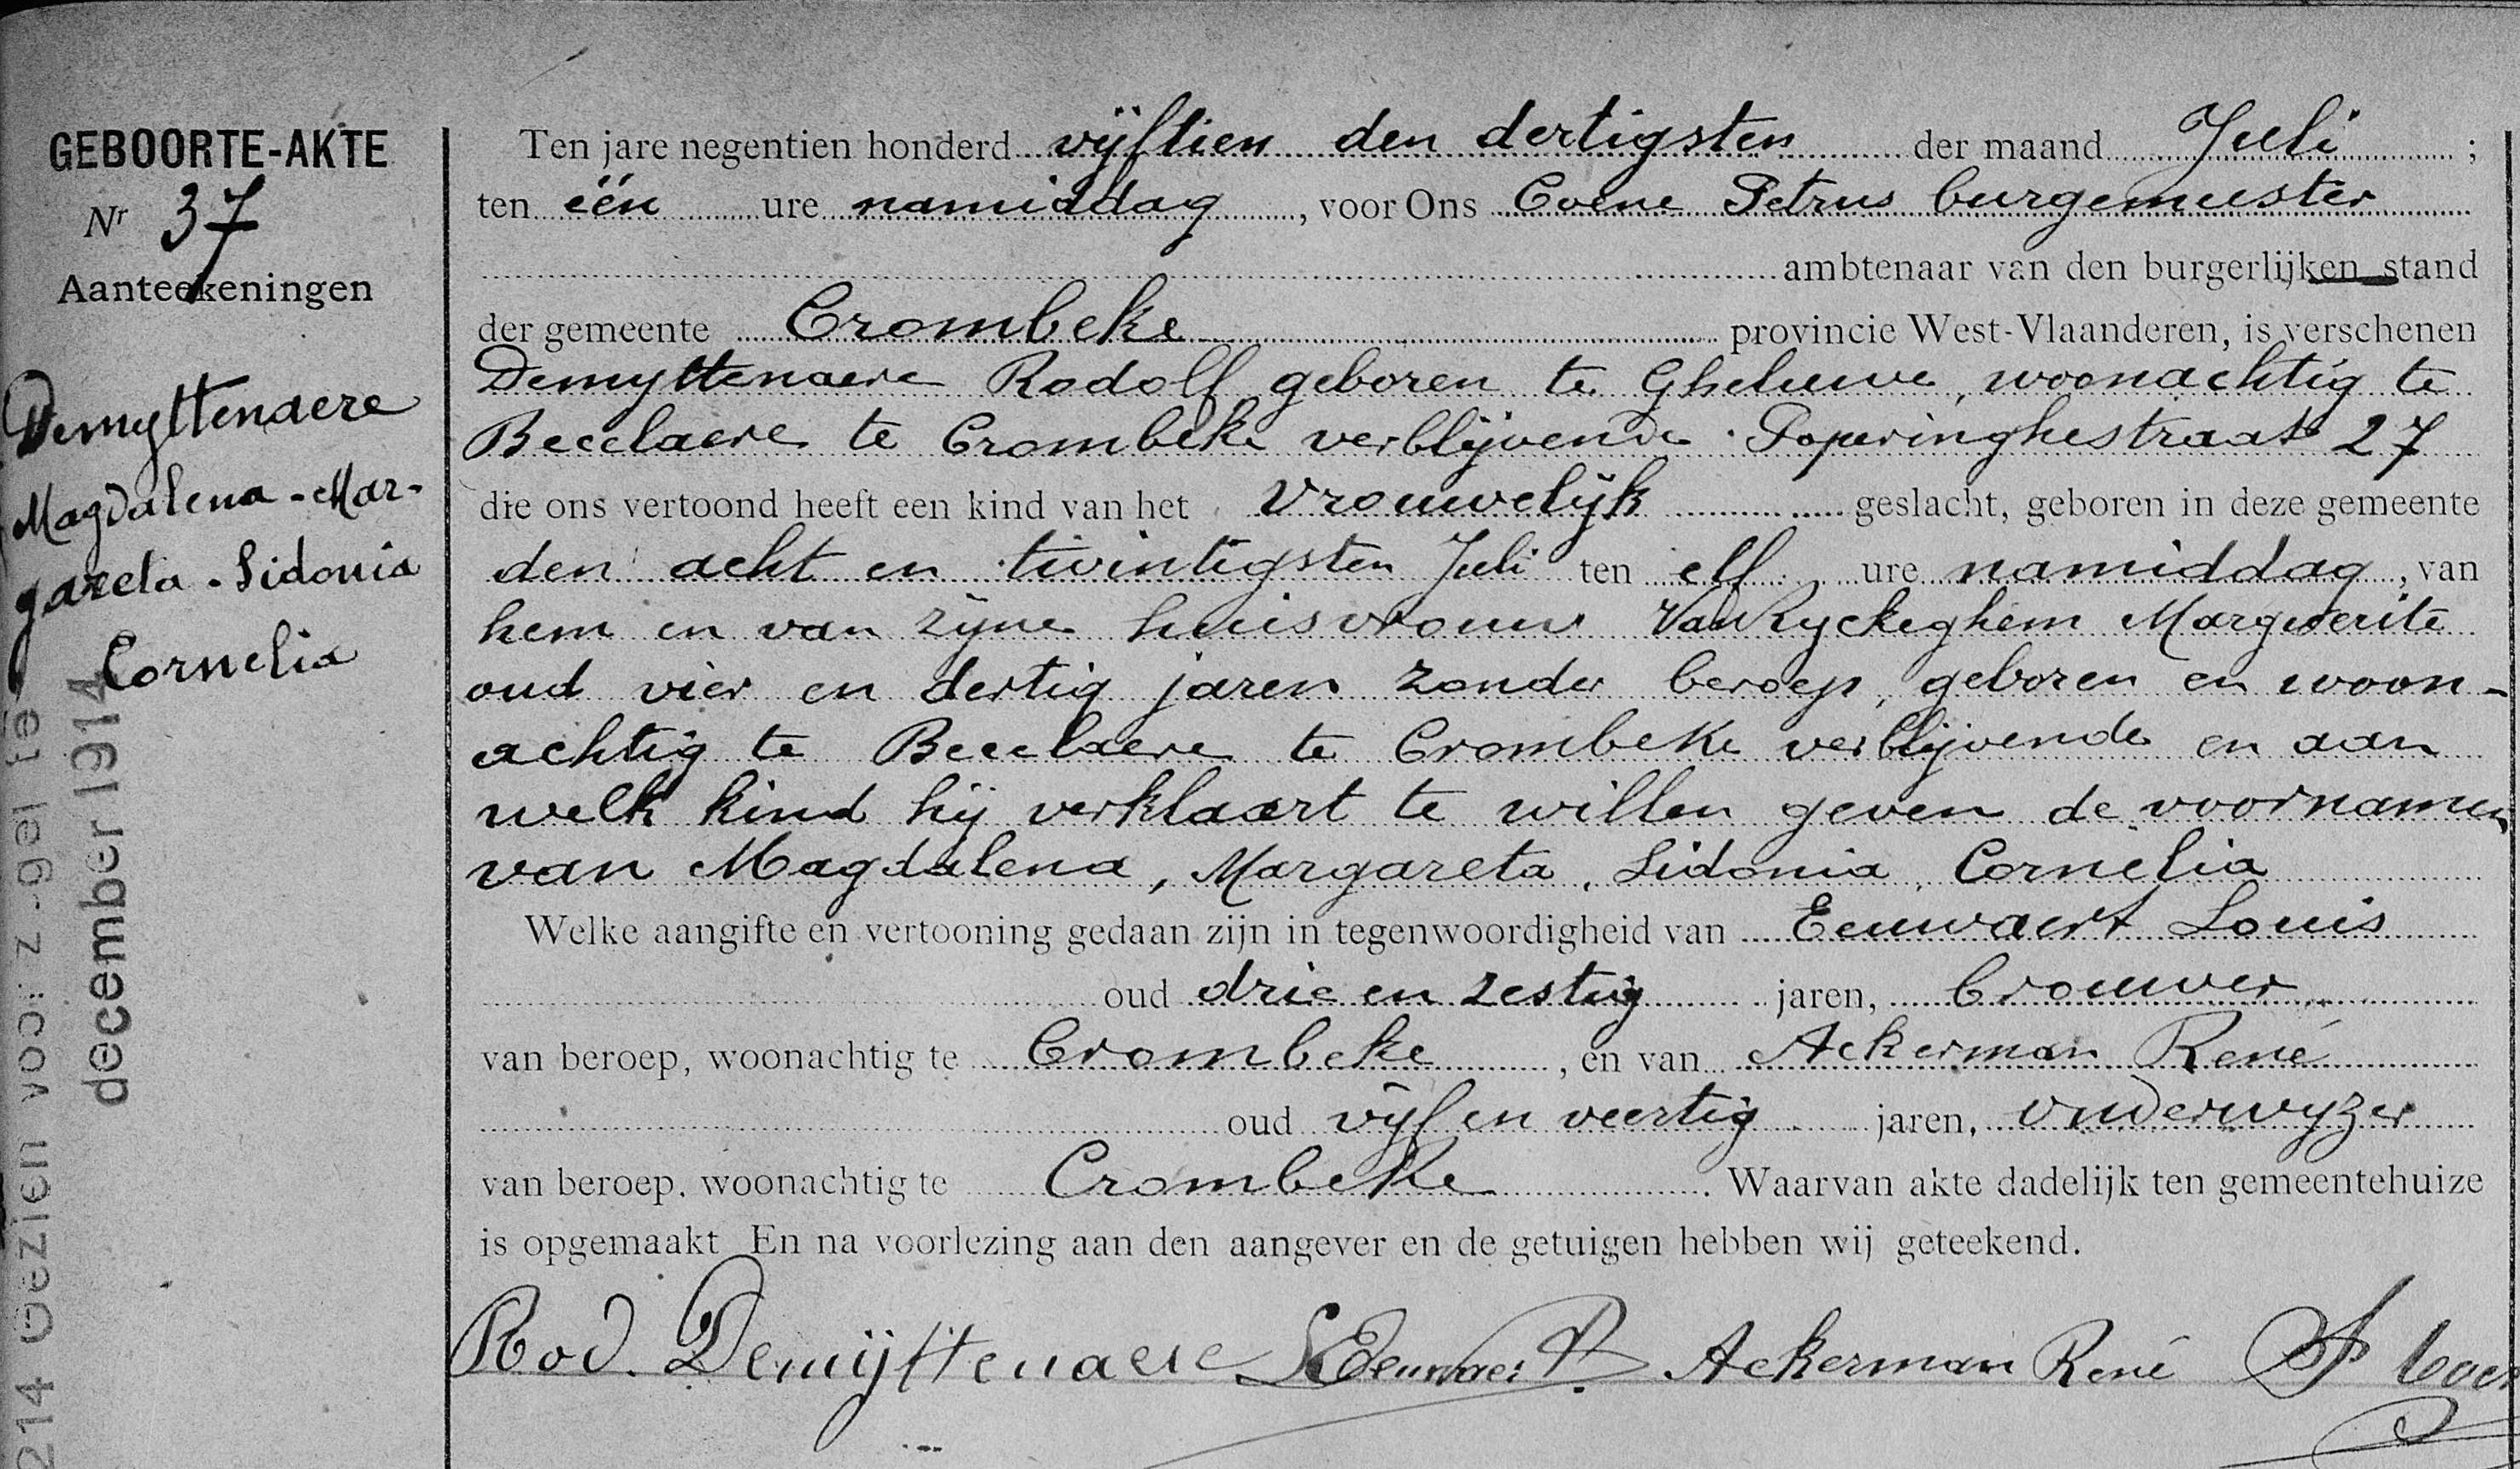 GEBOORTE-AKTE
Nr 37
Aanteekeningen
Demyttenaere
Magdalena-Mar-
gareta-Sidonia
Cornelia
214 Gezien voor z-gel te
december 1914
Ten jare negentien honderd vijftien den dertigsten der maand Juli ;
ten één ure namiddag , voor Ons Coene Petrus burgemeester
ambtenaar van den burgerlijken stand
der gemeente Crombeke provincie West-Vlaanderen, is verschenen
Demyttenaere Rodolf geboren te Gheluwe, woonachtig te
Becelaere te Crombeke verblijvende Poperinghestraat 27
die ons vertoond heeft een kind van het vrouwelijk geslacht, geboren in deze gemeente
den acht en twintigsten Juli ten elf ure namiddag , van
hem en van zijne huisvrouw VanRyckeghem Marguerite
oud vier en dertig jaren zonder beroep, geboren en woon-
achtig te Becelaere te Crombeke verblijvende en aan
welk kind hij verklaart te willen geven de voornamen
van Magdalena, Margareta, Sidonia, Cornelia
Welke aangifte en vertooning gedaan zijn in tegenwoordigheid van Eeuwaert Louis
oud drie en zestig jaren, brouwer
van beroep, woonachtig te Crombeke , en van Ackerman René
oud vijf en veertig jaren, onderwyzer
van beroep, woonachtig te Crombeke . Waarvan akte dadelijk ten gemeentehuize
is opgemaakt En na voorlezing aan den aangever en de getuigen hebben wij geteekend.
Rod. Demijttenaere L Eeuwaert Ackerman René P Coen